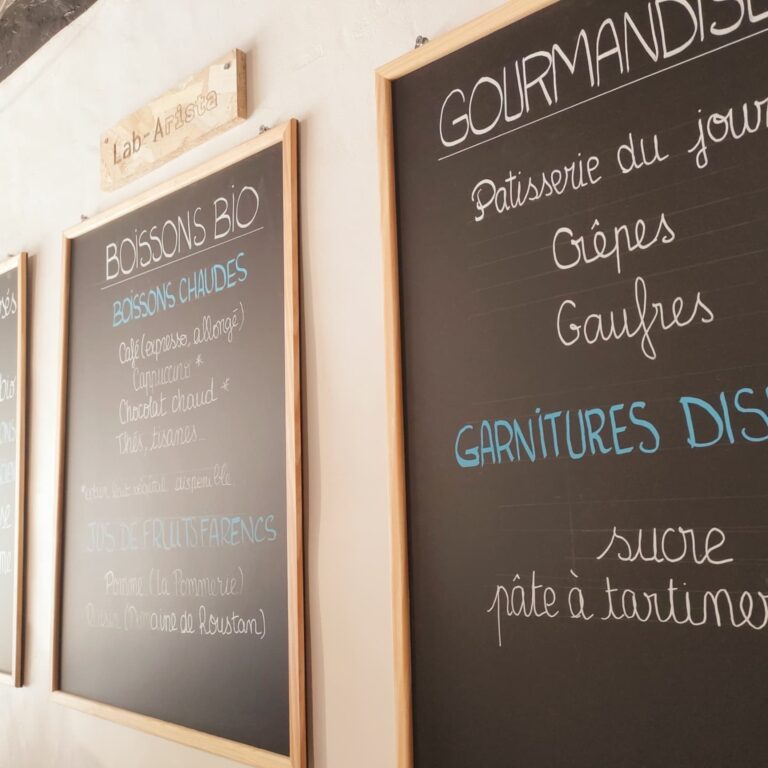 Lab-Arista
bio
BOISSONS BIO
BOISSONS CHAUDES
Café (expresso, allongé)
Cappuccino *
Chocolat chaud *
Thés, tisanes...
végétal disponible
JUS DE FRUITS FARENCS
Pomme (La Pommerie)
(Domaine de Roustan)
GOURMANDISE
Patisserie du jour
Crêpes
Gaufres
GARNITURES DIS
sucre
pâte à tartiner